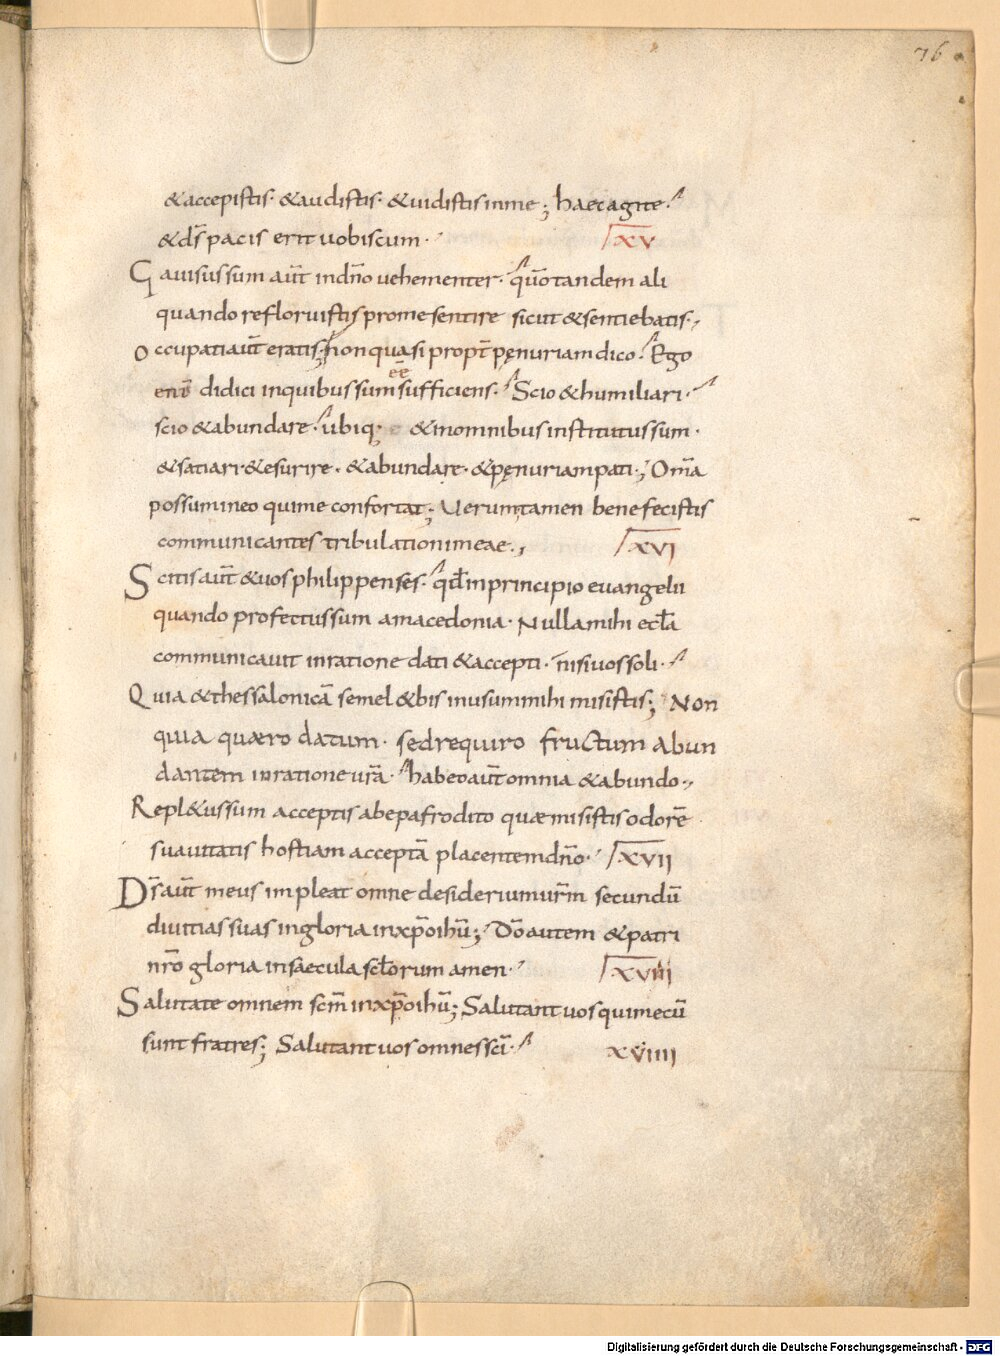 76
&accepistis· &audistis· &uidistis inme; haec agite·
&ds̄ pacis erit uobiscum· XV
Gauisus sum aūt indn̄o uehementer· quō tandem ali
quando refloruistis prome sentire sicut &sentiebatis·,
Occupati aūt eratis; non quasi propt̄ pęnuriam dico· Ego
eni̅ didici inquibus sum sufficiens· Scio &humiliari·
e̅e̅
scio &abundare· ubiq; &inomnibus institutus sum·
&satiari &esurire· &abundare· &pęnuriam pati·; Om̅a
possum ineo qui me confortat; Uerumtamen bene fecistis
communicantes tribulationi meae·, XVI
Scitis aūt &uos philippenses· qd̄ inprincipio euangelii
quando profectus sum amacedonia· Nulla mihi eccl̄a
communicauit inratione dati &accepti· nisi uos soli·
Quia &thessalonicā semel &bis inusum mihi misistis; Non
quia quaero datum· sed requiro fructum abun
dantem inratione ur̄a· habeo aūt omnia &abundo·,
Repl&us sum acceptis abepafrodito quae misistis odorē
suauitatis hostiam acceptā placentem dn̄o· XVII
Ds̄ aūt meus impleat omne desiderium ur̄m secundū
diuitias suas ingloria inxp̄o ihū; Dō autem &patri
nr̄o gloria insaecula scl̄orum amen· XVIII
Salutate omnem scm̄ inxp̄o ihū; Salutant uos qui mecū
sunt fratres; Salutant uos omnes scī· XVIIII
Digitalisierung gefördert durch die Deutsche Forschungsgemeinschaft - DFG